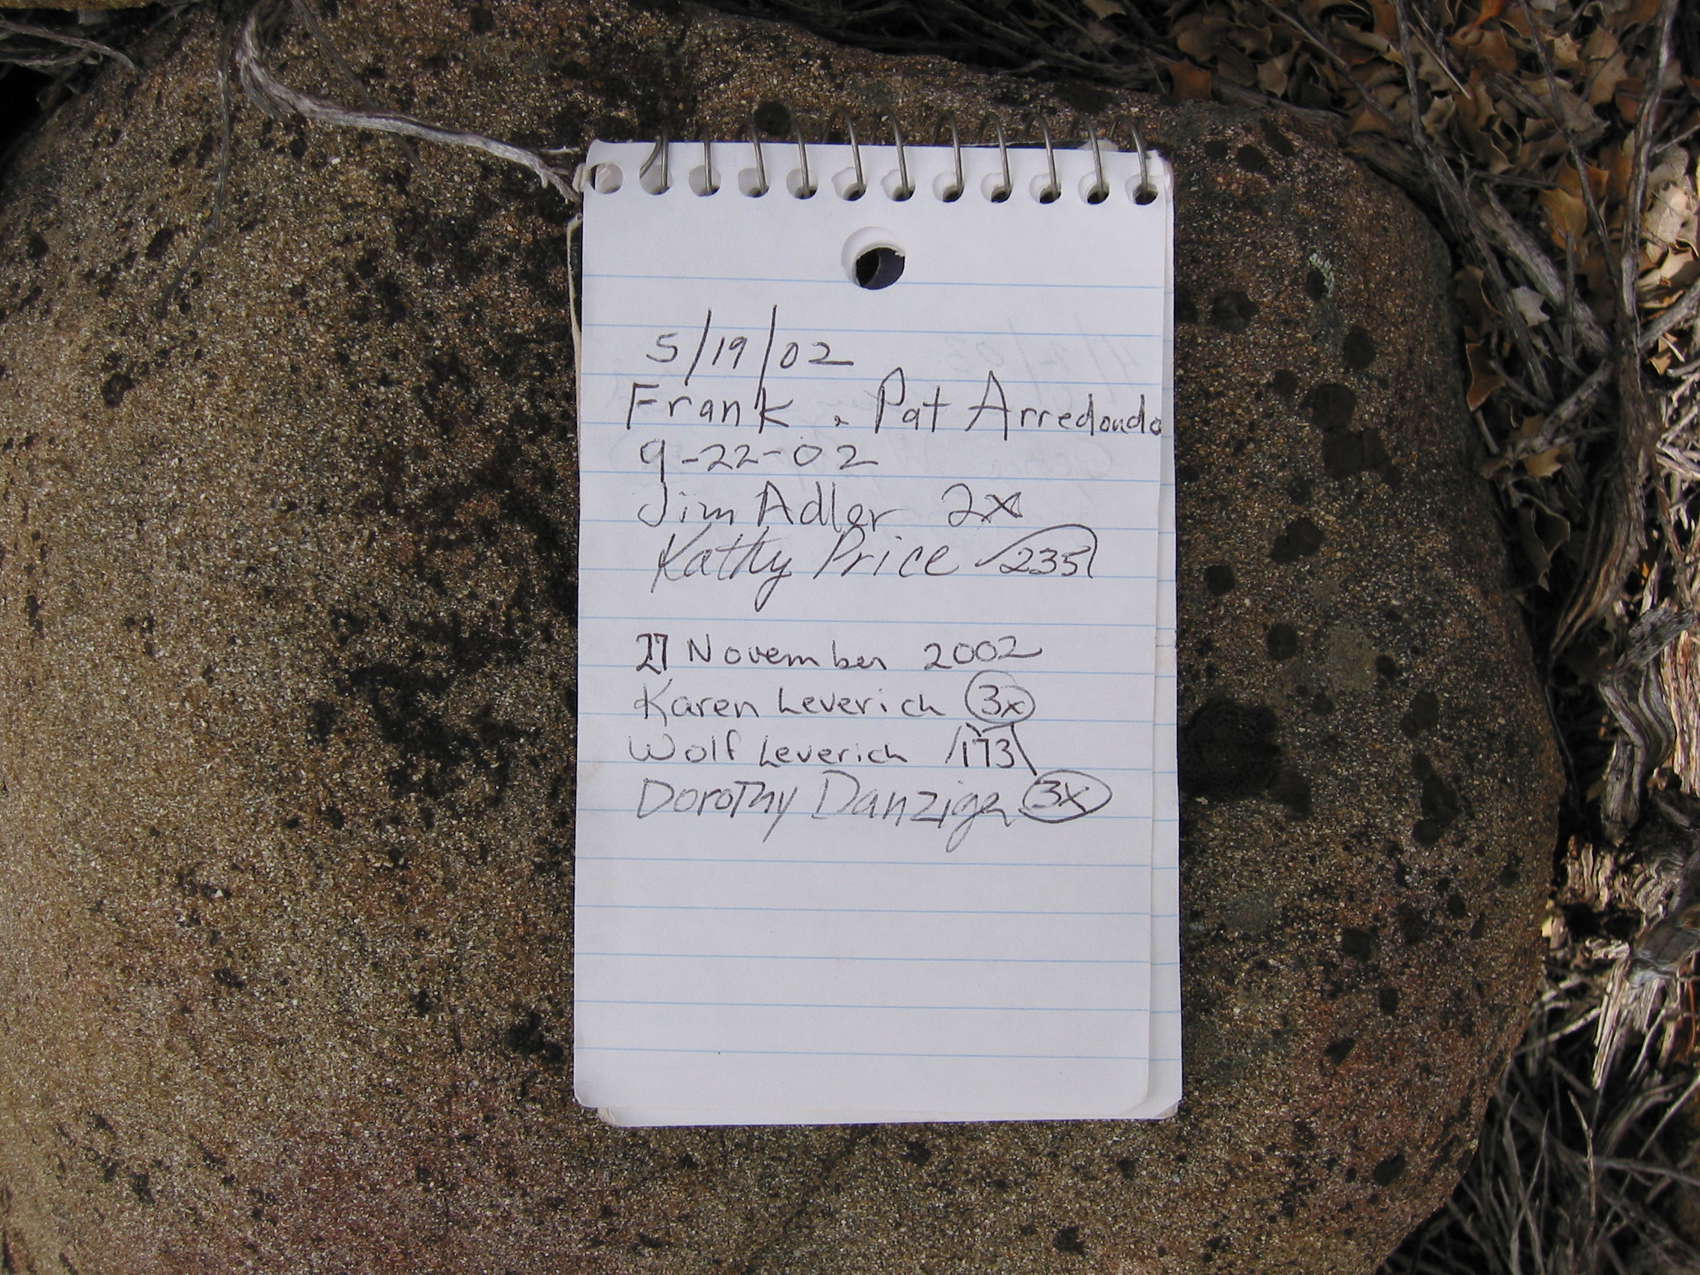 5/19/02
Frank & Pat Arredondo
9-22-02
Jim Adler 2x
Kathy Price 235
27 November 2002
Karen Leverich 3x
Wolf Leverich 173
Dorothy Danziger 3x